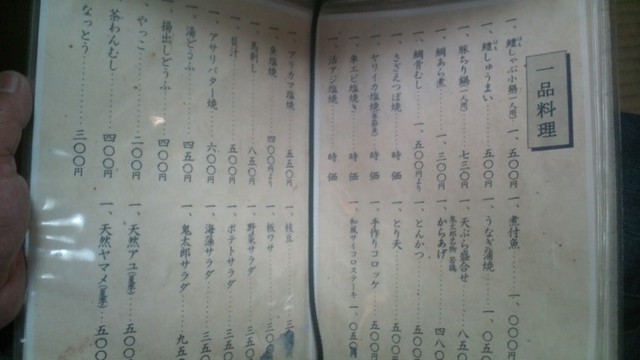 一品料理
一、鱧しゃぶ小鍋(一人前) 一、五〇〇円
一、鱧しゅうまい 五〇〇円
一、豚ちり鍋(一人前) 七三〇円
一、鯛あら煮 一、三〇〇円
一、鯛骨むし 一、五〇〇円より
一、さざえつぼ焼 時価
一、ヤリイカ塩焼 時価
一、車エビ塩焼き 時価
一、活アジ塩焼 時価
一、煮付魚 一、〇〇〇円
一、うなぎ蒲焼 一、〇五
一、天ぷら盛合せ 八五
からあげ 四八
一、とんかつ 五〇
一、とり天 五〇〇
一、手作りコロッケ 五〇〇円
一、和風サイコロステーキ 一、〇五〇円
一、アリカマ塩焼 五五〇円
一、魚塩焼 四〇〇円より
一、馬刺し 八五〇円
五〇〇円
一、アサリバター焼 六〇〇円
湯どうふ 四五〇円
揚出しどうふ 四〇〇円
やっこ 二〇〇円
茶わんむし 四〇〇円
なっとう 三〇〇円
一、枝豆 三
一、板ワサ 三〇
一、野菜サラダ 三五
一、ポテトサラダ 三五
一、海藻サラダ 三五
一、鬼太郎サラダ 九五
一、天然アユ 五〇
一、天然ヤマメ 五〇